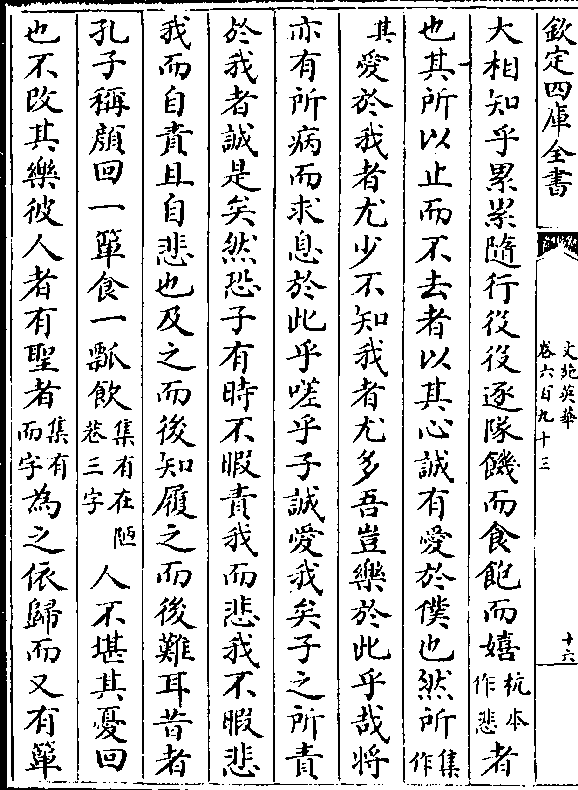 欽定四庫全書
文苑英華
卷六百九十三
十六
大相知乎累累隨行役役逐隊饑而食飽而嬉杭本作悲者
也其所以止而不去者以其心誠有愛於僕也然所集作
其愛於我者尤少不知我者尤多吾豈樂於此乎哉將
亦有所病而求息於此乎嗟乎子誠愛我矣子之所責
於我者誠是矣然恐子有時不暇責我而悲我不暇悲
我而自責且自悲也及之而後知履之而後難耳昔者
孔子稱顏回一簞食一瓢飲集有在陋巷三字人不堪其憂回
也不改其樂彼人者有聖者集有而字為之依歸而又有簞